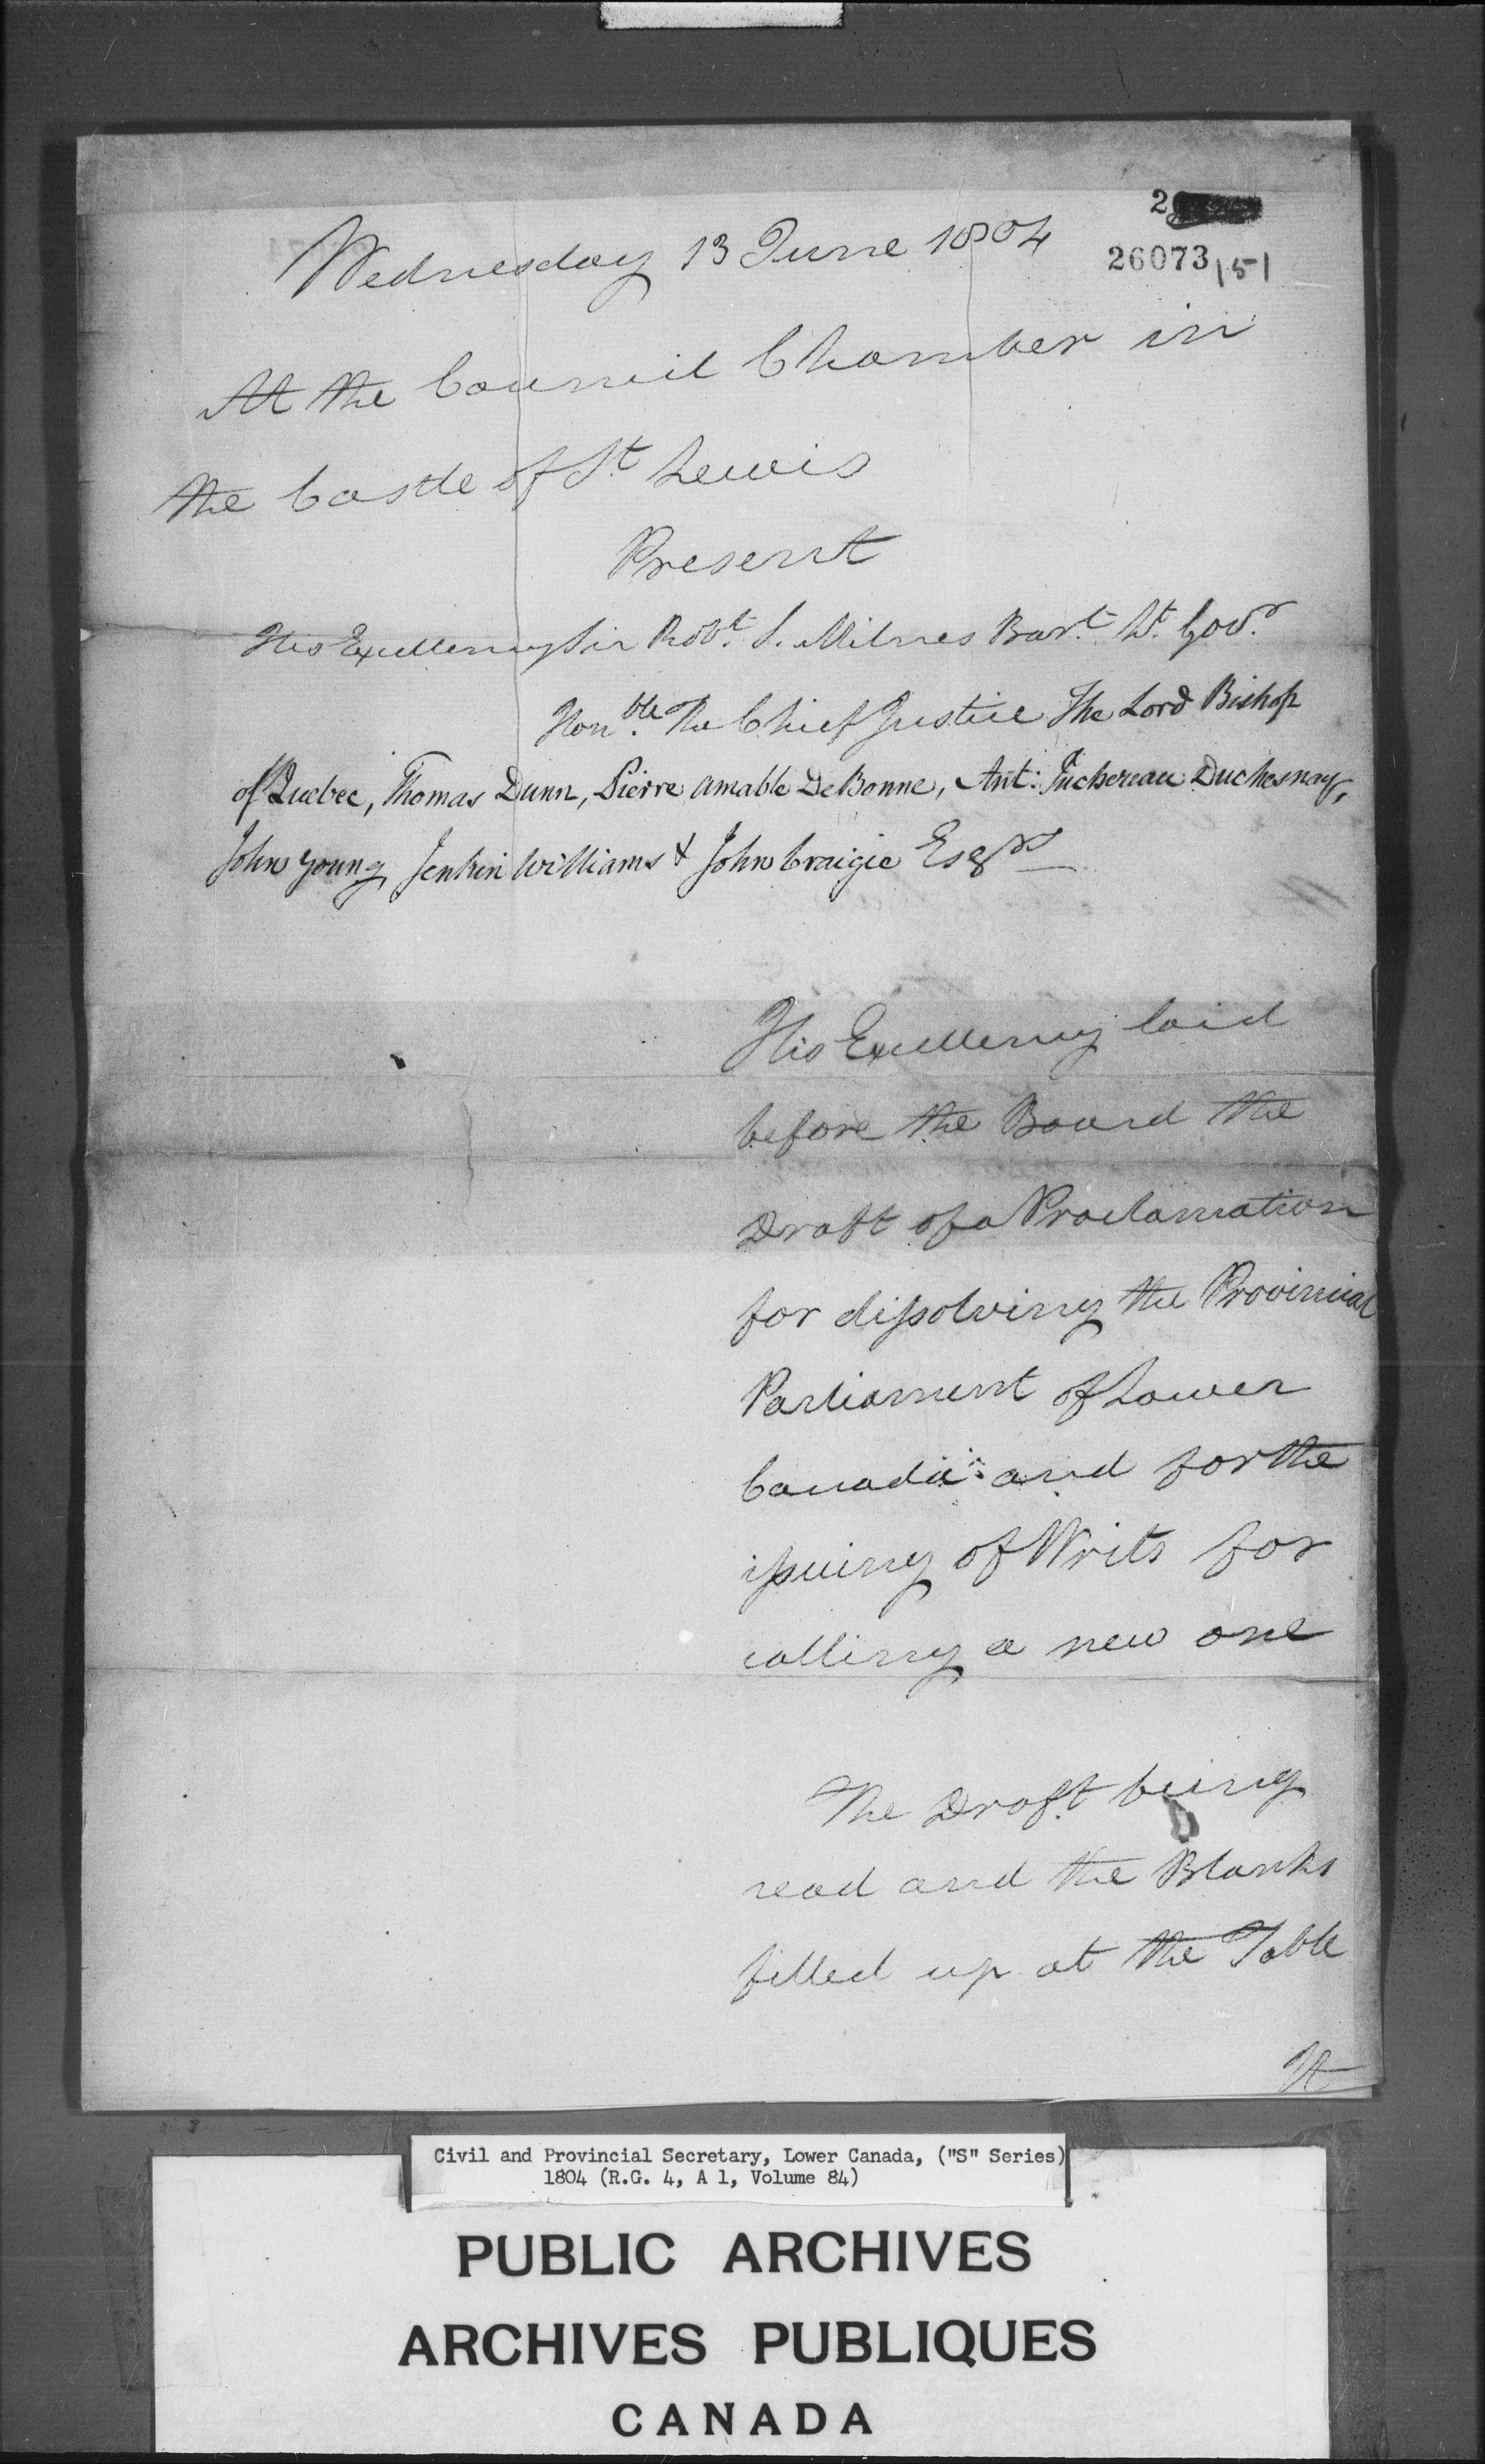 2
26073
151
Wednesday 13 June 1804
At the Council Chamber in
the Castle of St Lewis
Present
His Excellency Sir Robt. S. Milnes Bart. Lt. Govr.
Honble. The Chief Justice The Lord Bishop
of Quebec, Thomas Dunn, Pierre Amable De Bonne, Ant: Juchereau Duchesnay,
John Young, Jenkin Williams & John Craigie Esqrs
His Excellency laid
before the Board the
Draft of a Proclamation
for dissolving the Provincial
Parliament of Lower
Canada: and for the
issuing of Writs for
calling a new one
The Draft being
read and the Blanks
filled up at the Table
It
Civil and Provincial Secretary, Lower Canada, ("S" Series)
1804 (R.G. 4, A 1, Volume 84)
PUBLIC ARCHIVES
ARCHIVES PUBLIQUES
CANADA